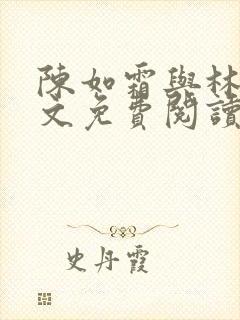 陳如霜與林
文免費閱讀
史丹霞